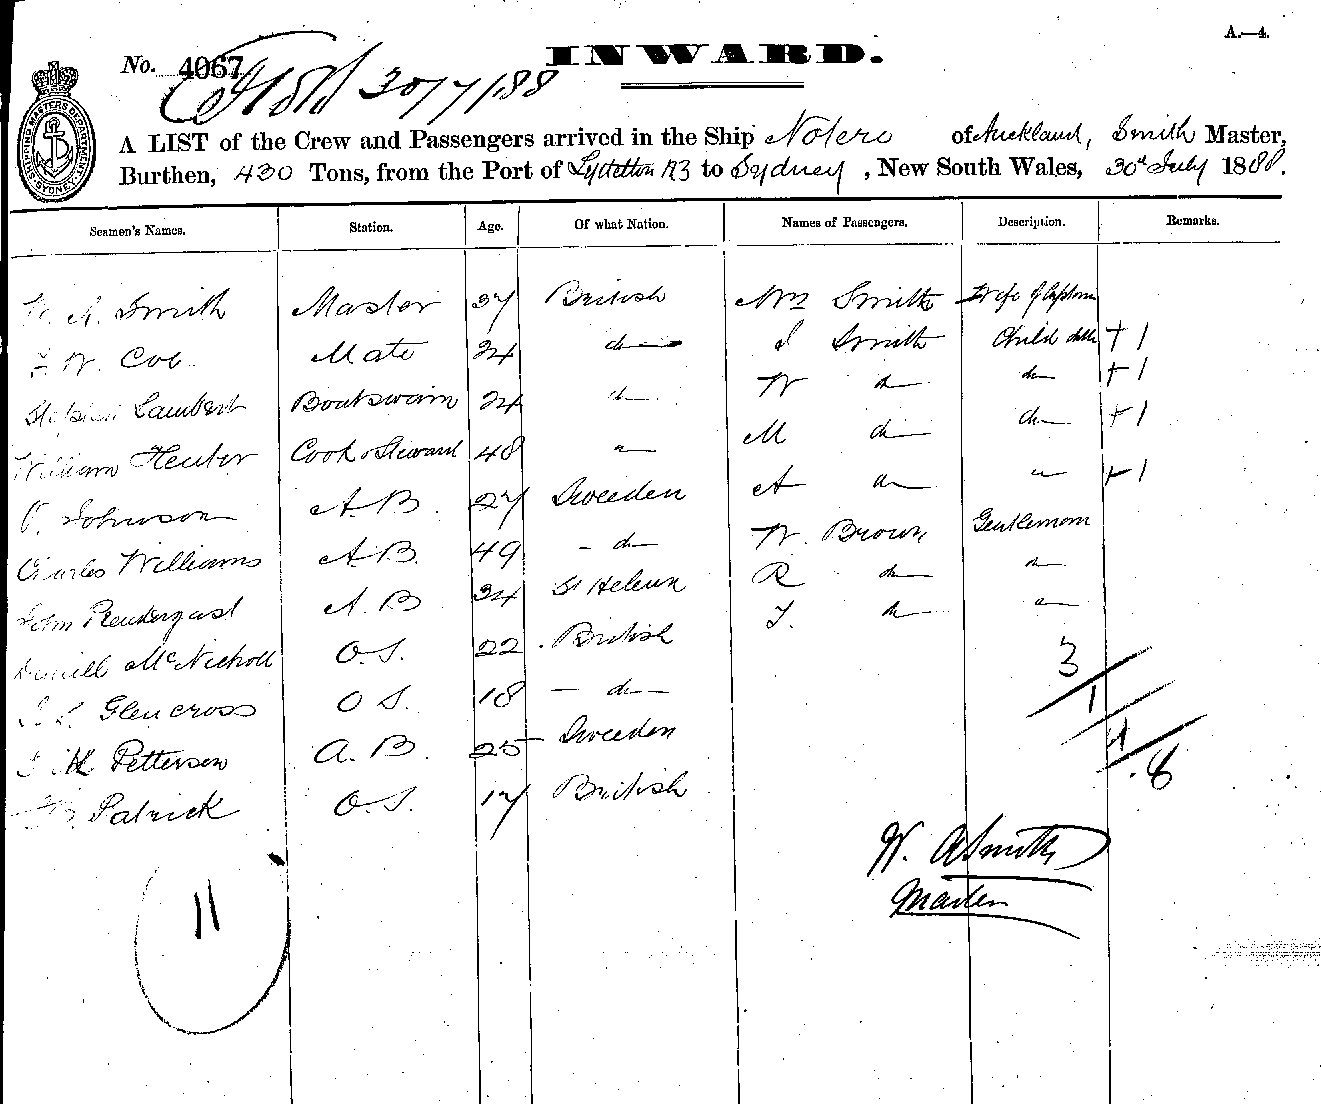 A.—4.
INWARD.
No. 4067
30/7/88
SHIPPING MASTERS DEPARTMENT SYDNEY
A LIST of the Crew and Passengers arrived in the Ship Notero of Auckland, Smith Master,
Burthen, 430 Tons, from the Port of Lyttelton NZ to Sydney, New South Wales, 30th July 1888.
Seamen's Names. Station. Age. Of what Nation. Names of Passengers. Description. Remarks.
W. A. Smith Master 37 British Mrs Smith Wife of Captain
F W. Cob Mate 24 do I Smith Child +1
Stephen Lambert Boatswain 24 do W do do +1
William Heuter Cook & Steward 48 do M do do +1
Johnson A.B. 27 Sweeden A do do +1
Charles Williams A.B. 49 do W. Brown Gentlemen
John Prendergast A.B 34 St Helena R do do
Daniell McNicholl O.S. 22 British J. do do
Glencross O S. 18 do
Petterson A.B 25 Sweeden
Patrick O.S. 17 British
3
1
4
8
W. A Smith
Master
11